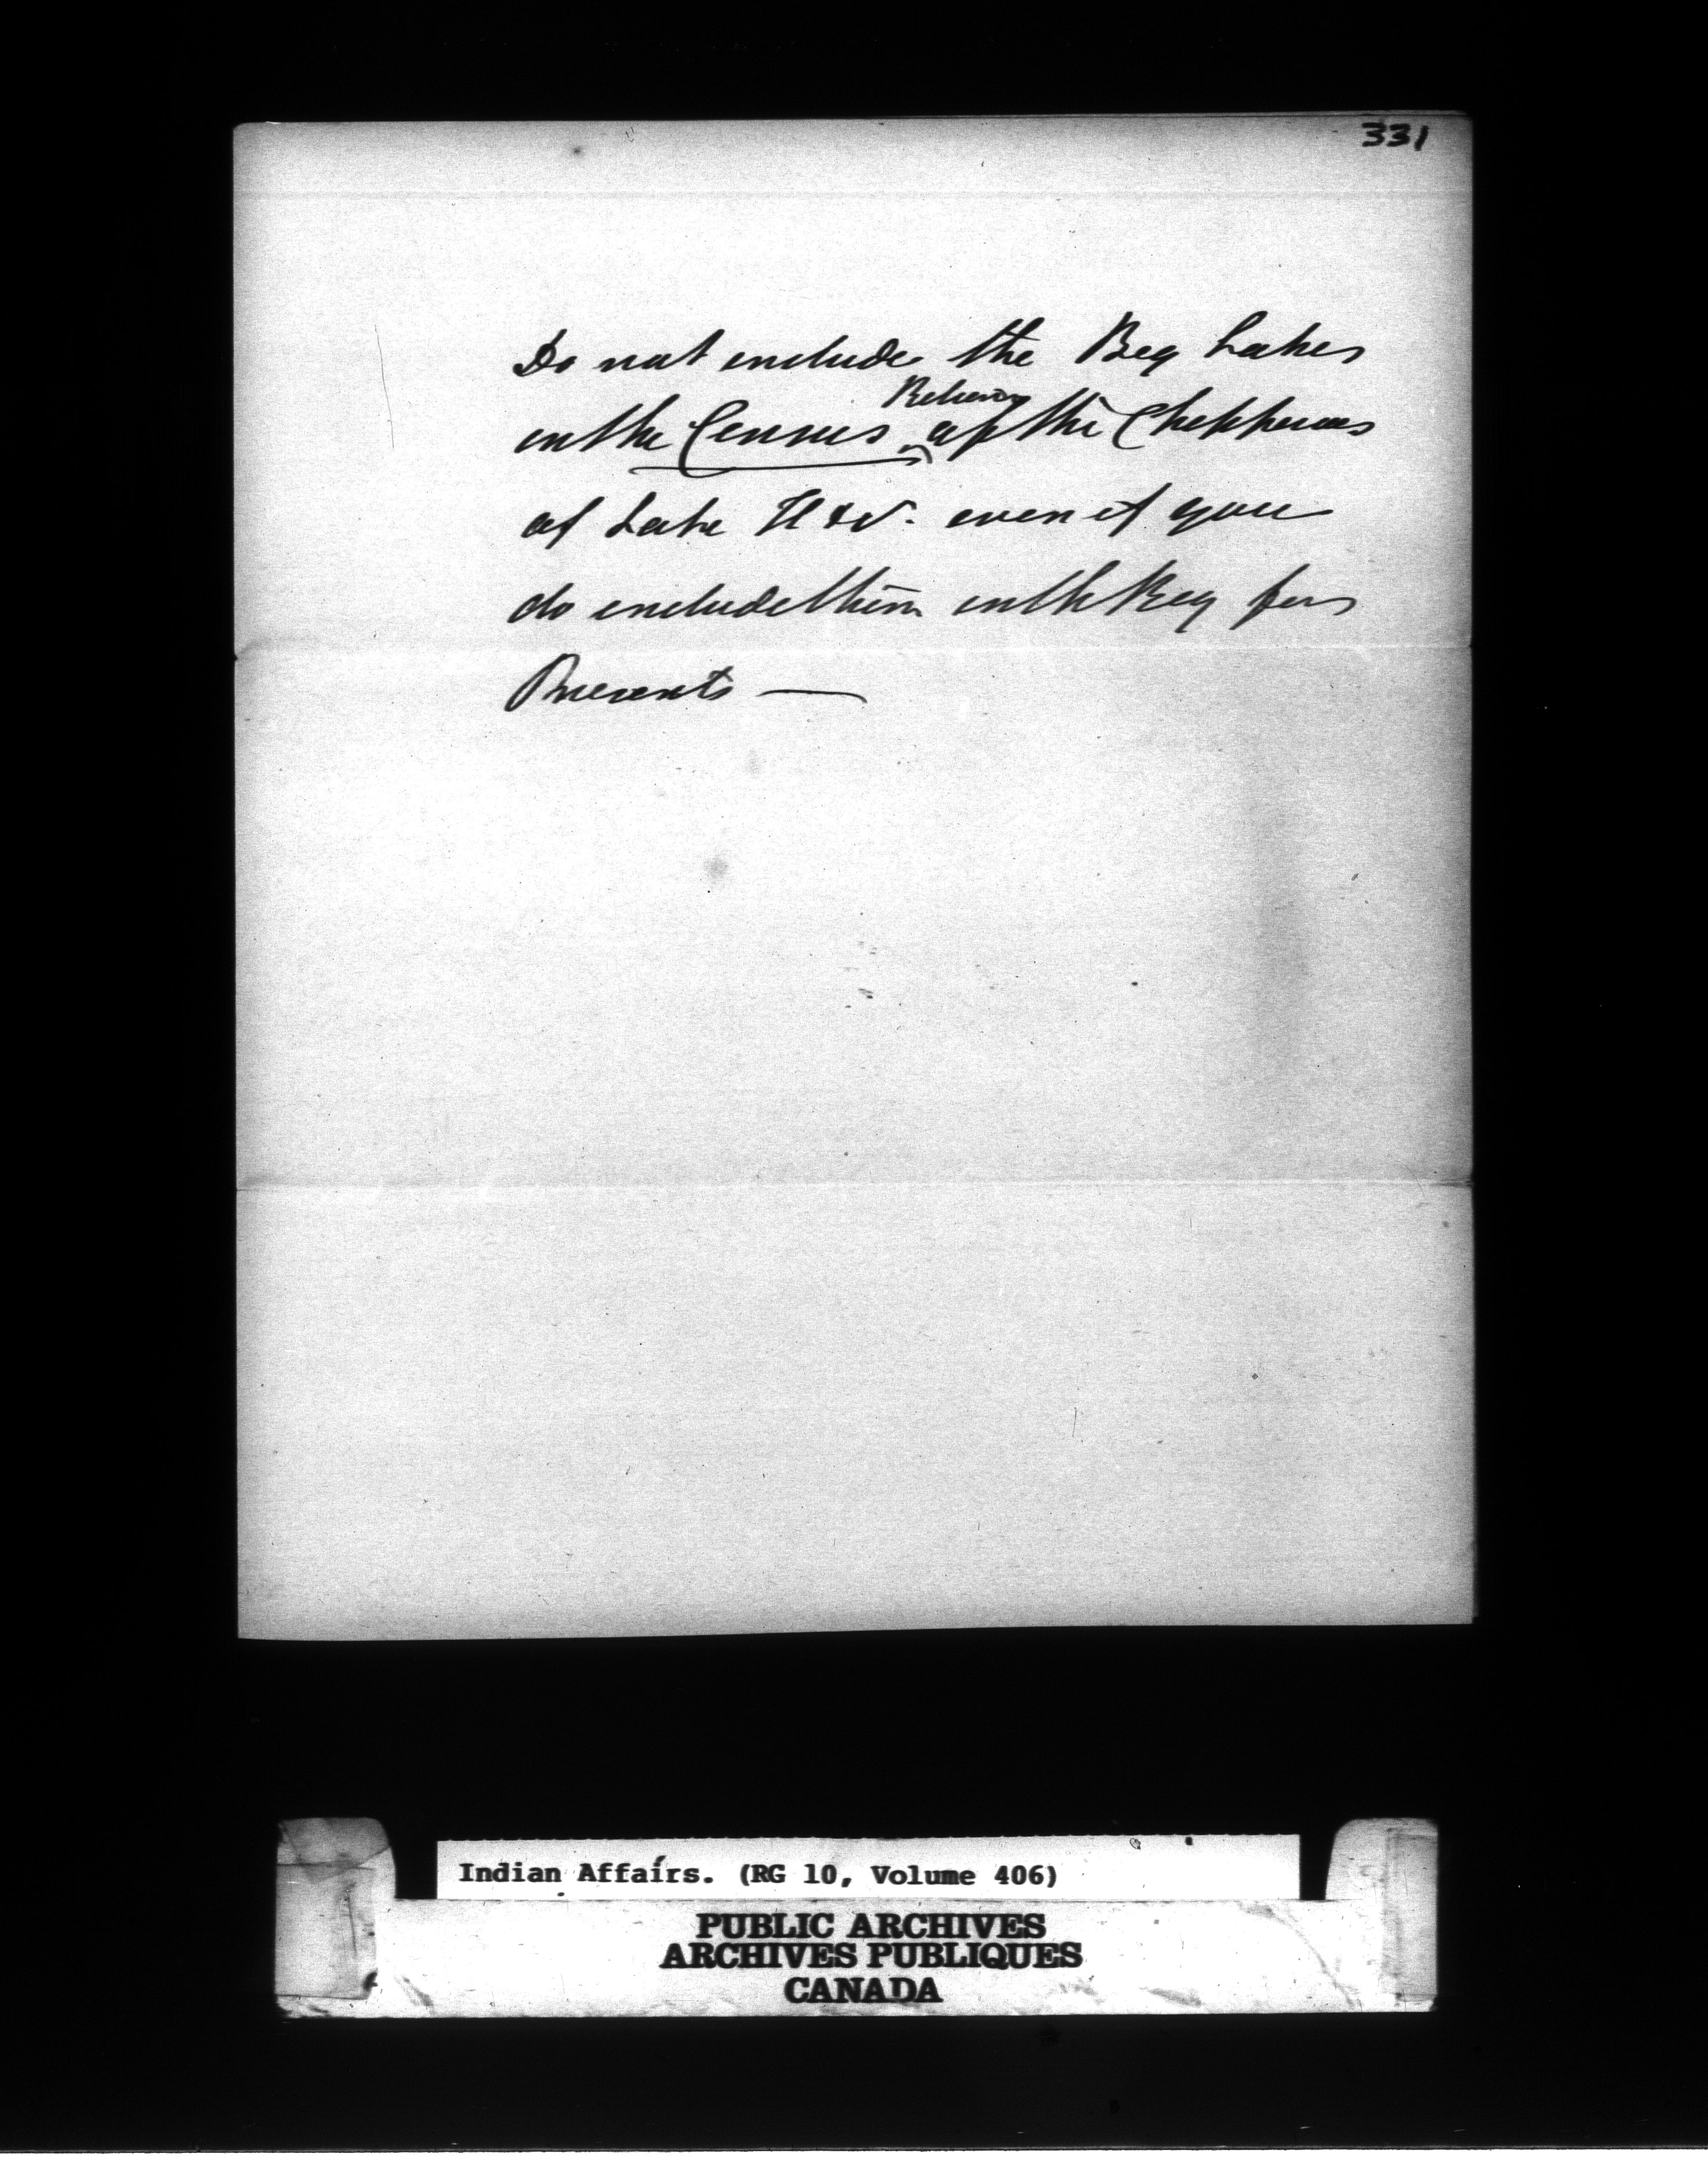 331
Do not include the Beg Lakes
in the Census Return of the Chippewas
of Lake H & S. even if you
do include them in th Req for
Presents —
Indian Affairs. (RG 10, Volume 406)
PUBLIC ARCHIVES
ARCHIVES PUBLIQUES
CANADA